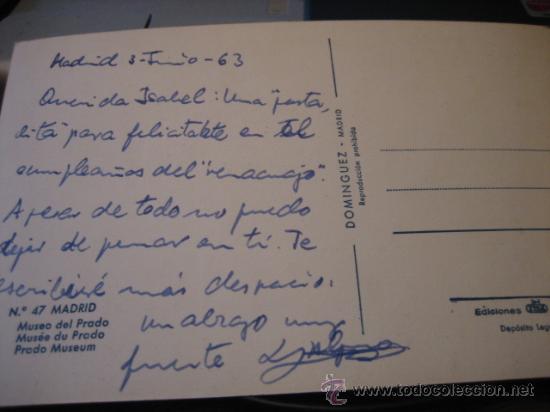 Madrid 3-Junio-63
Querida Isabel: Una "posta,
lita" para felicitarte en el
cumpleaños del "renacuajo".
A pesar de todo no puedo
dejar de pensar en tí. Te
escribiré más despacio.
un abrazo muy
fuerte
N.º 47 MADRID
Museo del Prado
Musée du Prado
Prado Museum
DOMINGUEZ - MADRID
Reproducción prohibida
Ediciones
Depósito Leg
www.todocoleccion.net